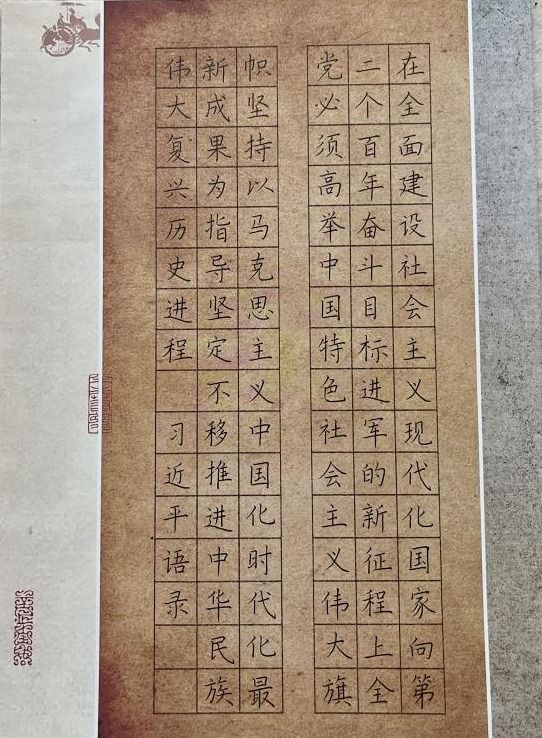 在全面建设社会主义现代化国家向第
二个百年奋斗目标进军的新征程上全
党必须高举中国特色社会主义伟大旗
帜坚持以马克思主义中国化时代化最
新成果为指导坚定不移推进中华民族
伟大复兴历史进程 习近平语录